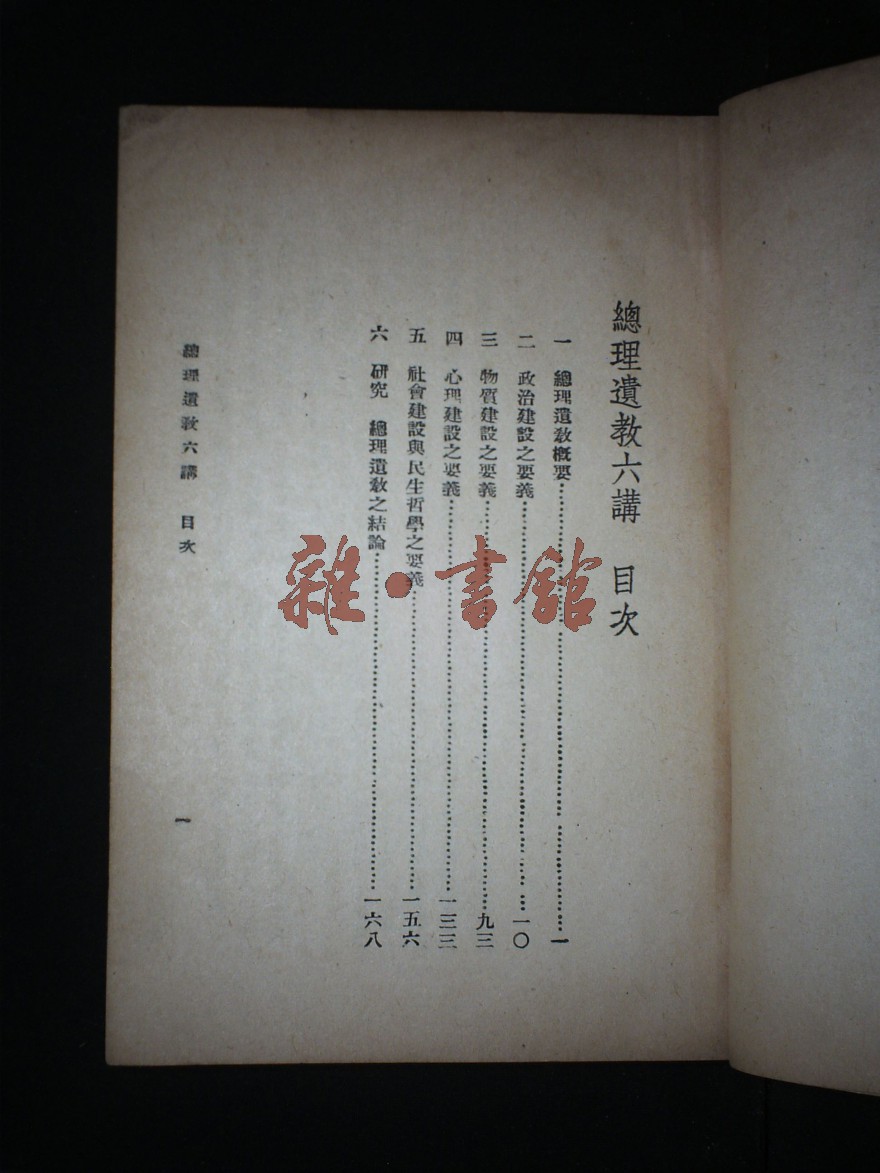 總理遺教六講　目次
一　總理遺教概要……………………一
二　政治建設之要義……………………一〇
三　物質建設之要義……………………九三
四　心理建設之要義……………………一三三
五　社會建設與民生哲學之要義……………………一五六
六　研究　總理遺教之結論……………………一六八
總理遺教六講　目次
一
雜·書館